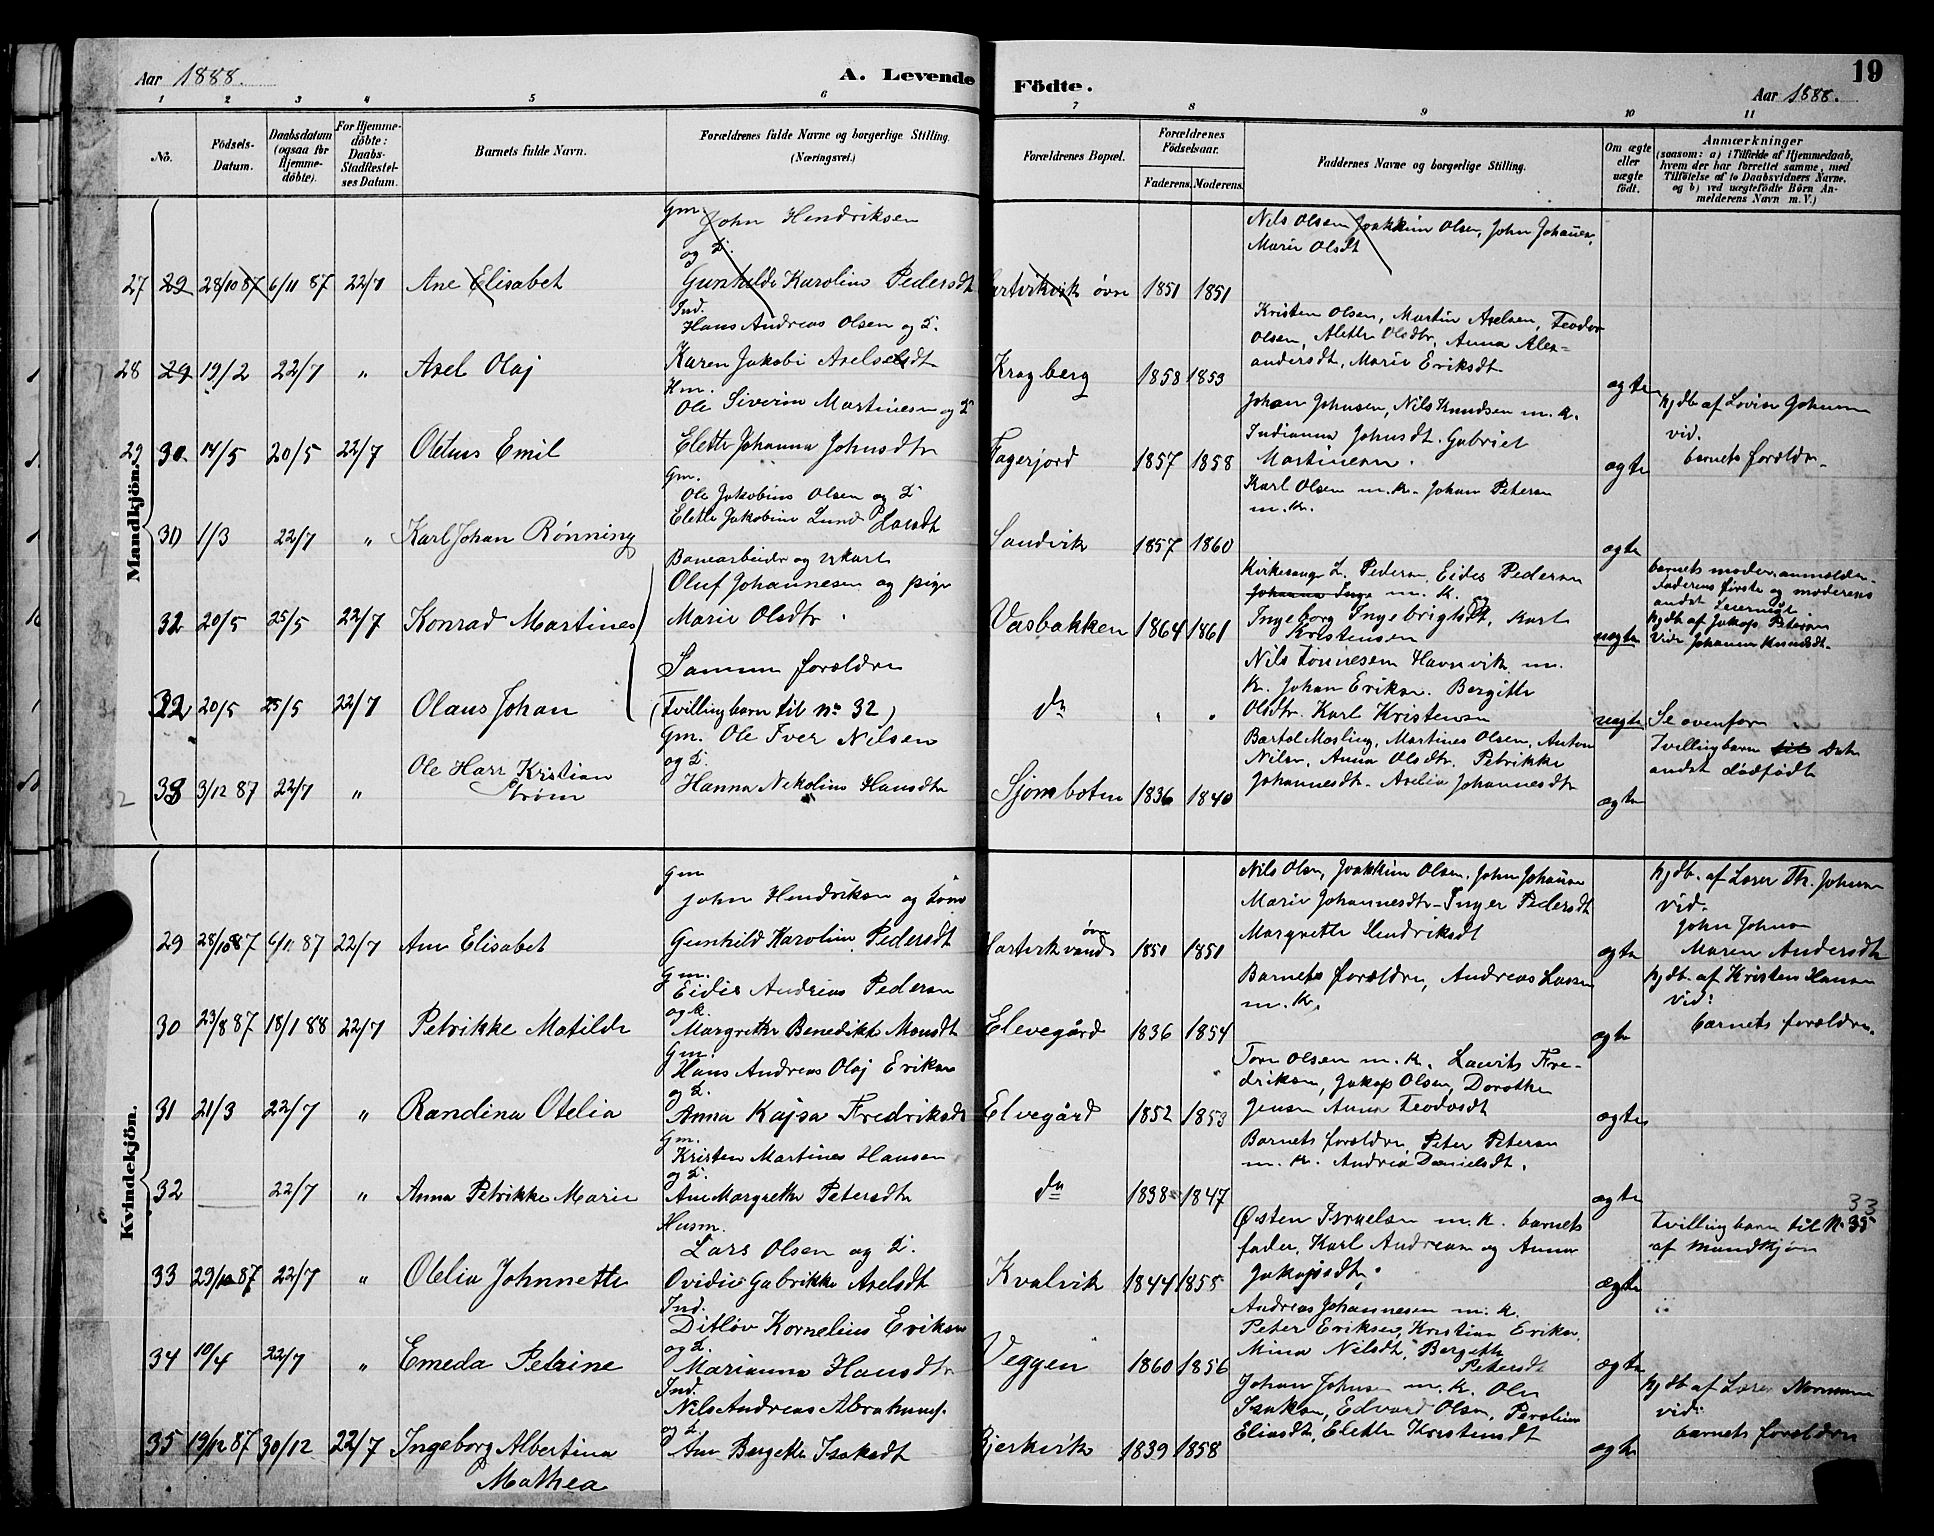 Aar 1888.
A. Levende Födte.
19
Aar 1888.
1 2 3 4 5 6 7 8 9 10 11
No.
Födsels-Datum.
Daabsdatum (ogsaa for Hjemme-döbte).
For Hjemme-döbte: Daabs-Stadfæstel-ses Datum.
Barnets fulde Navn.
Forældrenes fulde Navne og borgerlige Stilling.
(Næringsvei.)
Forældrenes Bopæl.
Forældrenes Födselsaar.
Faderens. Moderens.
Faddernes Navne og borgerlige Stilling.
Om ægte eller uægte födt.
Anmærkninger
(saasom: a) i Tilfælde af Hjemmedaab, hvem der har forrettet samme, med Tilföielse af to Daabsvidners Navne, og b) ved uægtefödte Börn Anmelderens Navn m. V.)
Mandkjön.
Gm John Hendriksen
og D.
27 29 28/10 87 6/11 87 22/7 Ane Elisabet Gunhilde Karolina Pedersdt øvre 1851 1851
Nils Olsen Joakkim Olsen, John Johansen,
Marie Olsdt
Ind.
Hans Andreas Olsen og D.
28 29 19/2 22/7 " Axel Olaj Karen Jakobi Axelsdt Kragberg 1858 1853 ægte
Kristen Olsen, Martin Axelsen, Teodor
Olsen, Alette Olsdtr, Anna Alex=
andersdt, Marie Eriksdt
Hm.
Ole Siverin Martinesen og D
29 30 14/5 20/5 22/7 Oletus Emil Elette Johanna Johnsdtr Fagerjord 1857 1858 ægte
Johan Johnsen, Nils Knudsen m. k.
Indianna Johnsdt. Gabriel
Martinesen.
hjdb. af Lovise Johnsen
vid.
barnets forældre.
Gm.
Ole Jakobius Olsen og D
30 1/3 22/7 " Karl Johan Rønning Elette Jakobine Lund Sandvik 1857 1860 ægte
Karl Olsen m. k. Johan Petersen
m. k.
Banearbeider og
Oluf Johannesen og pige
32 20/5 25/5 22/7 Konrad Martines Marie Olsdtr Vasbakken 1864 1861 uægte
Kirkesanger L. Pedersen, Eides Pedersen
m. k. og
Ingeborg Ingebrigtsdt, Karl
Kristensen
barnets moder anmelder.
Faderens første og moderens
andet Leiermaal.
hjdb af Jakop Petersen
Vid. Johanna
Samme forældre
32 20/5 25/5 22/7 Olaus Johan (Tvillingbarn til No 32) do " " uægte
Nils Tønnesen Havnvik m.
k. Johan Eriksen. Bergitte
Olsdtr. Karl Kristensen
Se ovenfor
Gm. Ole Iver Nilsen
og D.
33 3/12 87 22/7 " Ole Harr Kristian Strøm Hanna Nikoline Hansdtr Sjombotten 1836 1840 ægte
Bartol Mosling, Martines Olsen, Anton
Nilsen, Anna Olsdtr, Petrikke
Johannesdt. Axelia Johannesdtr
Tvillingbarn til det
andet dødfødt
32
Kvindekjön.
Gm
John Hendriksen og
29 28/10 87 6/11 87 22/7 Ane Elisabet Gunhild Karoline Pedersdt Hartvikvand øvre 1851 1851 ægte
Nils Olsen, Joakkim Olsen, John Johansen
Marie Johannesdtr. Inger Pedersdt
Margrette Hendriksdt
hjdb. af Lærer Th. Johnsen
vid.
John Johnsen
Maren Andersdtr
Gm.
Eidis Andreas Pedersen
og k.
30 23/8 87 18/1 88 22/7 Petrikke Matilde Margrethe Benedikte Monsdt Elevegård 1836 1854 ægte
Barnets forældre, Andreas Larsen
m. k.
hjdb. af Kristen Hansen
Vid:
barnets forældre.
Gm.
Hans Andreas Olaj Eriksen
og D.
31 21/3 22/7 " Randina Otelia Anna Kajsa Fredriksdt Elvegård 1852 1853 ægte
Tore Olsen m. k. Laurits Fre-
driksen, Jakop Olsen, Dorothea
Jensen Anna Teodosdt
Gm.
Kristen Martines Hansen
og D.
32 22/7 " Anna Petrikke Marie Ane Margrethe Petersdtr do 1838 1847 ægte
Barnets forældre, Peter Petersen
m. k. Andrea Danielsdt.
Husm.
Lars Olsen og D.
33 29/10 87 22/7 " Otelia Johnnette Ovidie Gabrikke Axelsdt Kvalvik 1844 1855 ægte
Østen Israelsen m. k. barnets
fader, Karl Andreasen og Anna
Jakopsdtr.
33
Tvillingbarn til No 35
af Mandkjøn
Ind.
Ditløv Kornelius Eriksen
og D.
34 10/4 22/7 " Emeda Petrine Marianna Hansdtr Veggen 1860 1856 ægte
Andreas Johannesen m. k.
Peter Eriksen, Kristian Eriksen,
Mina Nilsdt, Bergitte
Petersdt
Ind.
Nils Andreas Abrahams.
og D.
35 19/12 87 30/12 22/7 Ingeborg Albertina Mathea Ane Bergitte Isaksdt Bjerkvik 1839 1858 ægte
Johan Johnsen m. k. Ole
Isaksen, Edvard Olsen, Peroline
Eliasdt, Elette Kristensdt
hjdb af Lærer Normann
vid:
barnets forældre